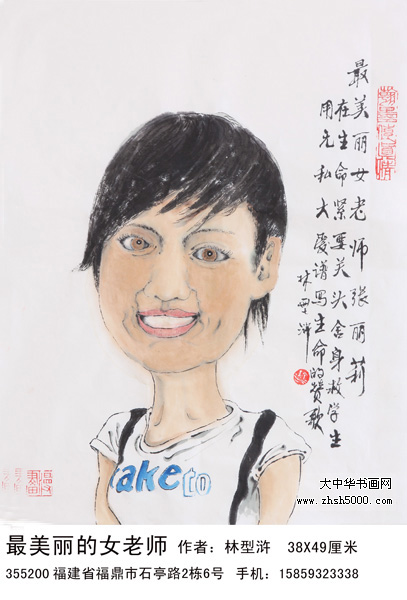 最美丽女老师张丽莉
在生命紧要关头舍身救学生
用无私大爱谱写生命的赞歌
林型浒
take to
大中华书画网
www.zhsh5000.com
最美丽的女老师 作者：林型浒 38X49厘米
355200 福建省福鼎市石亭路2栋6号 手机：15859323338